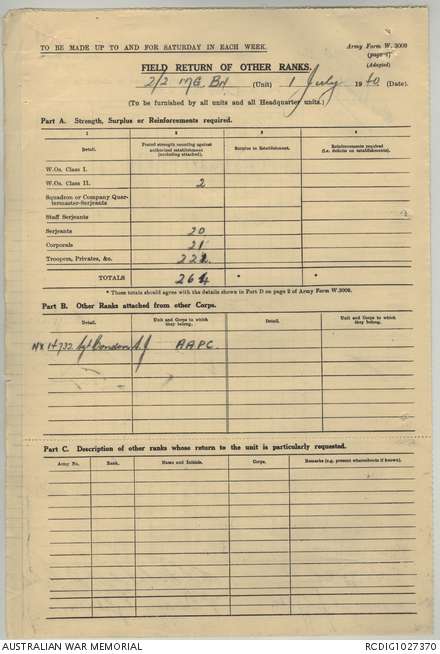 TO BE MADE UP TO AND FOR SATURDAY IN EACH WEEK.
Army Form W. 3009
(page 1)
(Adapted)
FIELD RETURN OF OTHER RANKS.
2/2 MG BN (Unit) 1 July 1940 (Date).
(To be furnished by all units and all Headquarter units.)
Part A. Strength, Surplus or Reinforcements required.
1 2 3 4
Detail. Posted strength counting against authorized establishment (excluding attached). Surplus to Establishment. Reinforcements required (i.e. deficits on establishments).
W.Os. Class I.
W.Os. Class II. 2
Squadron or Company Quartermaster-Serjeants
Staff Serjeants
Serjeants 20
Corporals 21
Troopers, Privates, &c. 221
TOTALS 264 * *
* These totals should agree with the details shown in Part D on page 2 of Army Form W.3009.
Part B. Other Ranks attached from other Corps.
Detail. Unit and Corps to which they belong. Detail. Unit and Corps to which they belong.
NX 14732 Sgt A.J AAPC.
Part C. Description of other ranks whose return to the unit is particularly requested.
Army No. Rank. Name and Initials. Corps. Remarks (e.g., present whereabouts if known).
AUSTRALIAN WAR MEMORIAL
RCDIG1027370